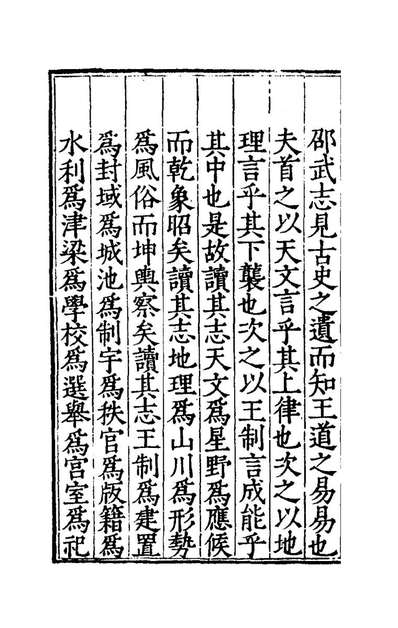 邵武志見古史之遺而知王道之易易也
夫首之以天文言乎其上律也次之以地
理言乎其下襲也次之以王制言成能乎
其中也是故讀其志天文爲星野爲應候
而乾象昭矣讀其志地理爲山川爲形勢
爲風俗而坤輿察矣讀其志王制爲建置
爲封域爲城池爲制宇爲秩官爲版籍爲
水利爲津梁爲學校爲選舉爲宫室爲祀